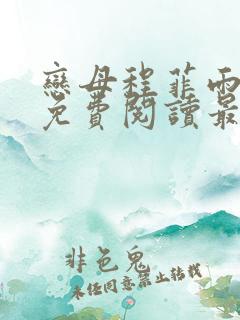 戀母程菲雨
免費閱讀最
非色鬼
未任同意禁止转载